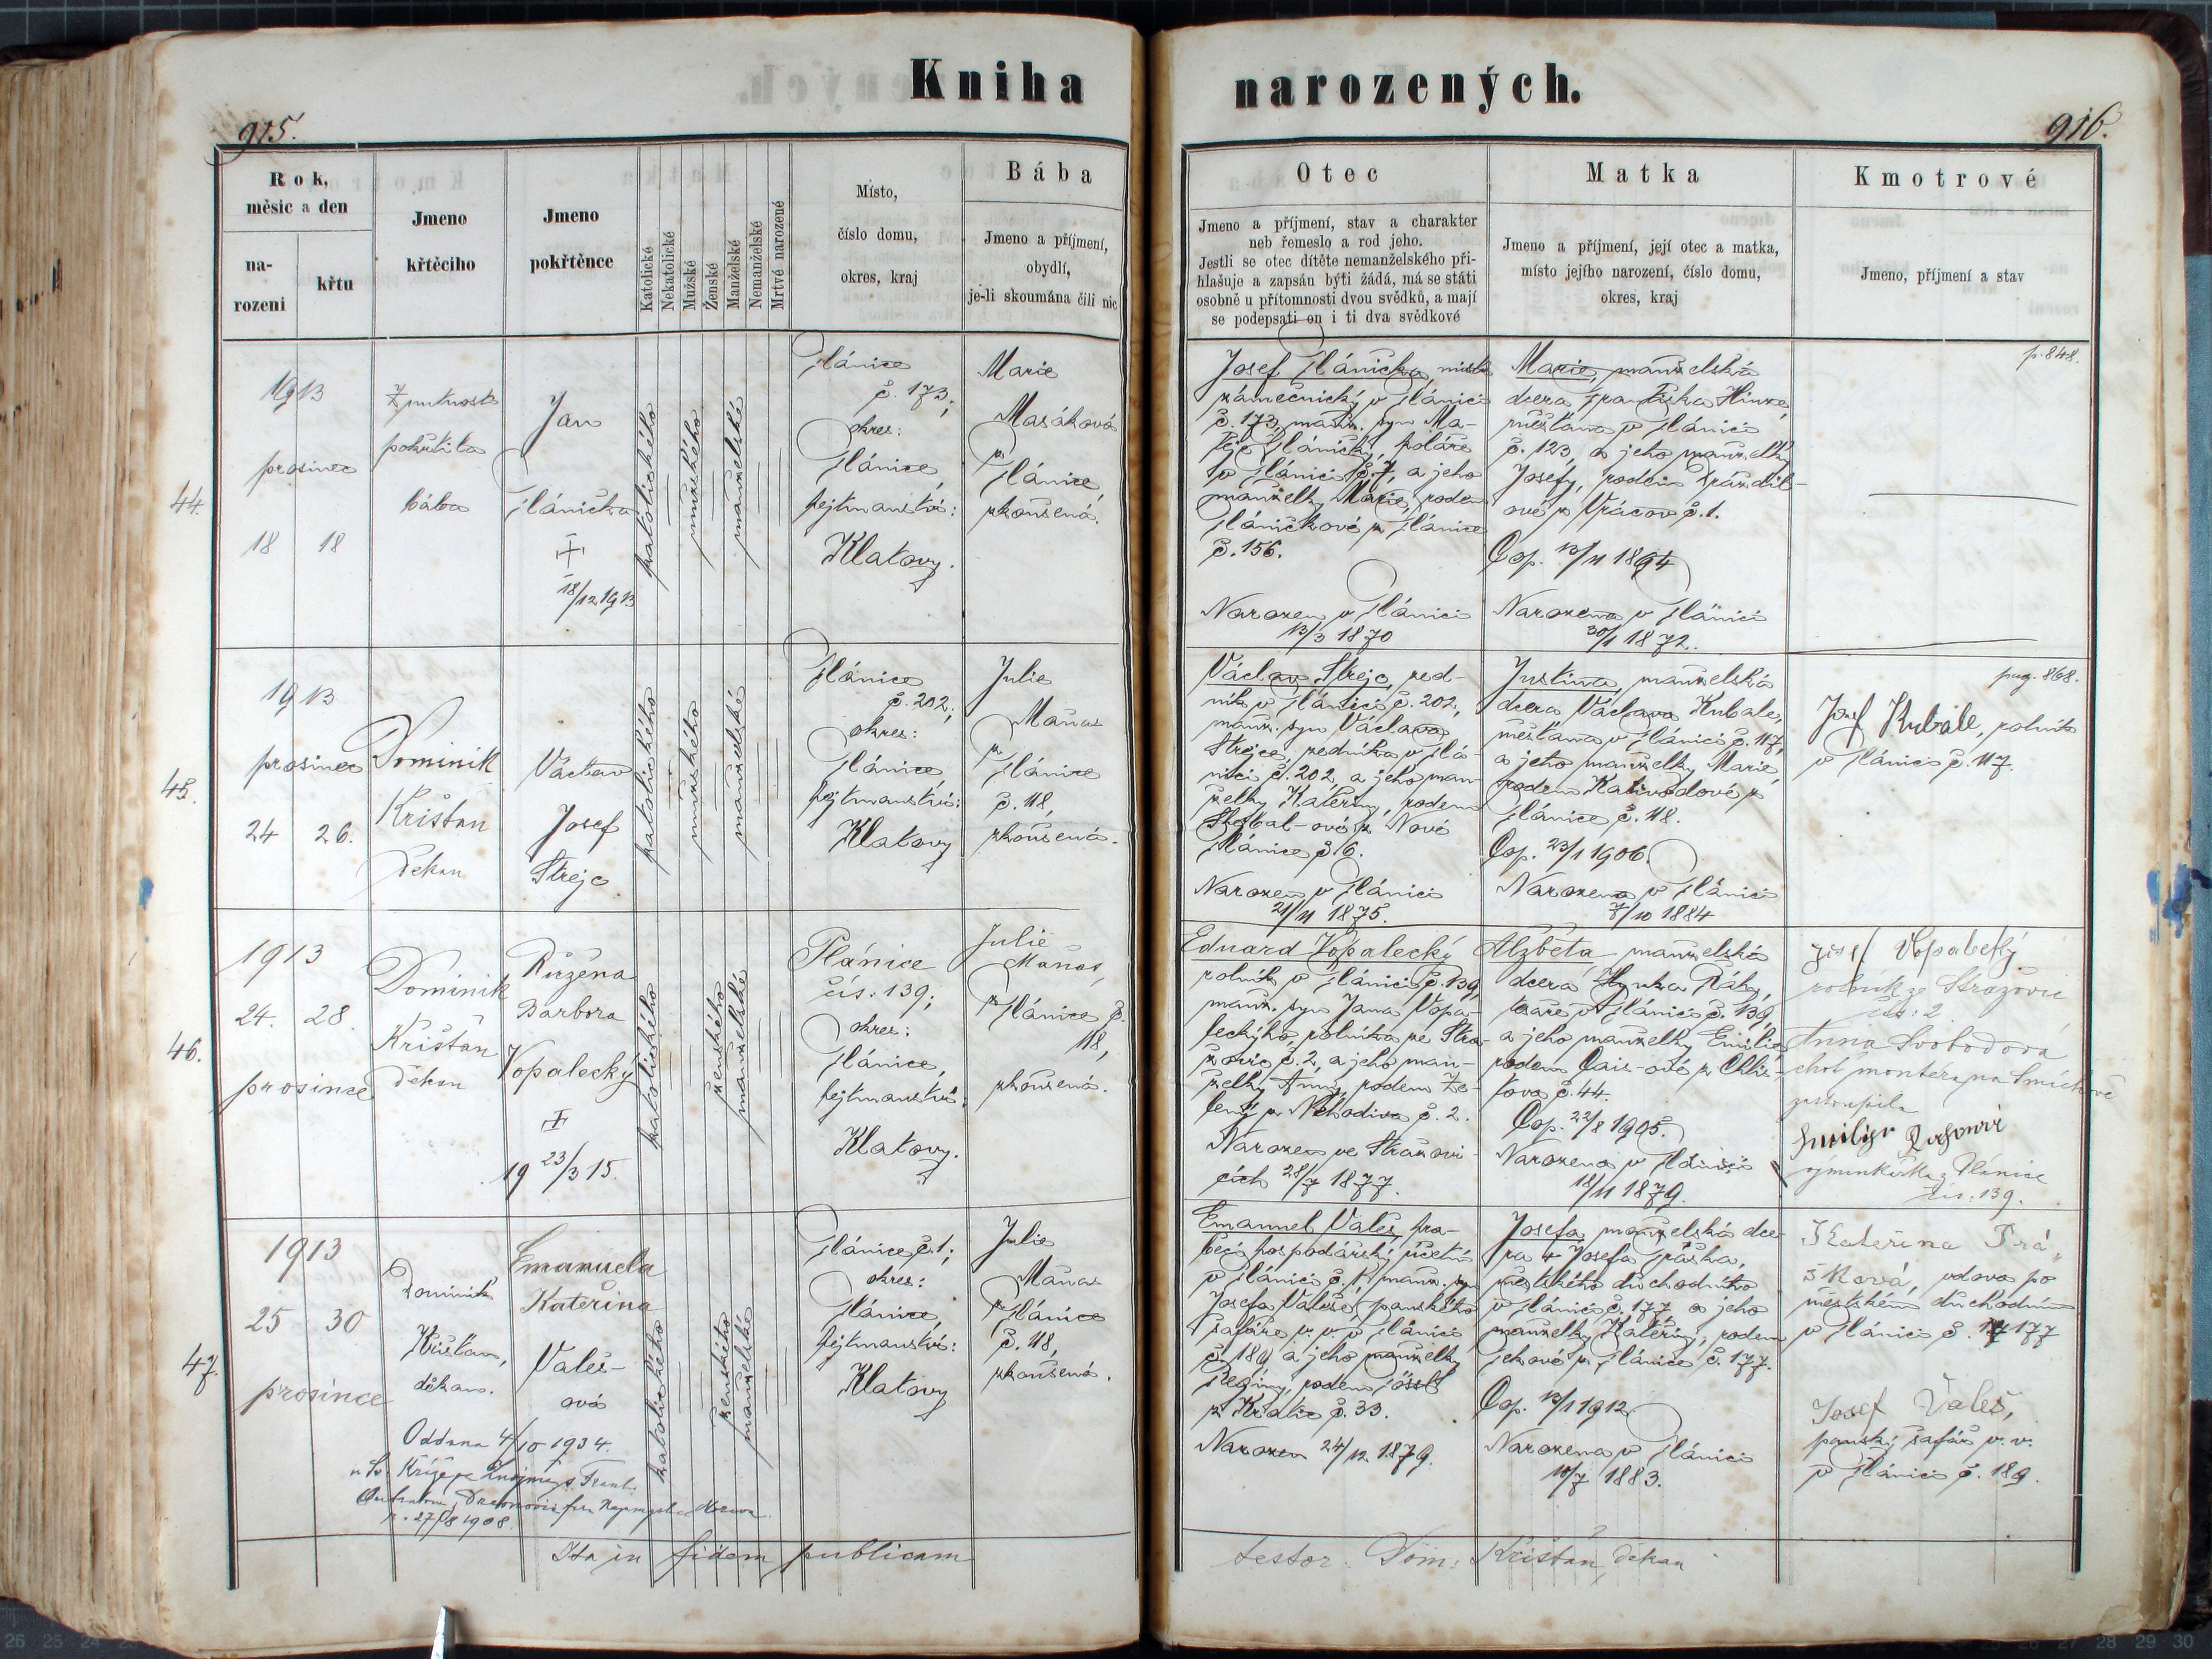 Kniha
narozených.
915.
916.
Rok,
měsíc a den
na-
rození
křtu
Jmeno
křtěcího
Jmeno
pokřtěnce
Katolické
Nekatolické
Mužské
Ženské
Manželské
Nemanželské
Mrtvé narozené
Místo,
číslo domu,
okres, kraj
Bába
Jmeno a příjmení,
obydlí,
je-li skoumána čili nic
Otec
Jmeno a příjmení, stav a charakter
neb řemeslo a rod jeho.
Jestli se otec dítěte nemanželského při-
hlašuje a zapsán býti žádá, má se státi
osobně u přítomnosti dvou svědků, a mají
se podepsati on i ti dva svědkové
Matka
Jmeno a příjmení, její otec a matka,
místo jejího narození, číslo domu,
okres, kraj
Kmotrové
Jmeno, příjmení a stav
44.
1913
prosinec
18 18
Z nutnosti
pokřtila
bába
Jan
Plánička
+
18/12 1913
katolického
mužského
manželské
Plánice
č. 173;
okres:
Plánice,
hejtmanství:
Klatovy.
Marie
Masáková
z
Plánice,
zkoušená.
Josef Plánička, mistr
zámečnický v Plánici
č. 173, manž. syn Ma-
těje Pláničky, koláře
v Plánici č. 7, a jeho
manželky Marie, rodem
Pláničkové z Plánice
č. 156.
Narozen v Plánici
13/3 1870
Marie, manželská
dcera Františka Hinze,
měšťana v Plánici
č. 123, a jeho manželky
Josefy, rodem
ové z Vracova č. 1.
Cop. 13/11 1894
Narozena v Plánici
30/1 1872.
p. 848.
45.
1913
prosinec
24 26.
Dominik
Krišťan
děkan
Václav
Josef
Strejc
katolického
mužského
manželské
Plánice
č. 202;
okres:
Plánice
hejtmanství:
Klatovy
Julie
Maňas
z
Plánice
č. 118,
zkoušená.
Václav Strejc, zed-
ník v Plánici č. 202,
manž. syn Václava
Strejce, zedníka v Plá-
nici č. 202, a jeho man-
želky Kateřiny, rodem
z Nové
Plánice č. 6.
Narozen v Plánici
21/11 1875.
Justina, manželská
dcera Václava Kubale,
měšťana v Plánici č. 117,
a jeho manželky Marie,
rodem Kalivodové z
Plánice č. 118.
Cop. 23/1 1906.
Narozena v Plánici
7/10 1884
pag. 868.
Josef Kubále, rolník
v Plánici č. 117.
46.
1913
24. 28.
prosince
Dominik
Krišťan
děkan
Růžena
Barbora
Vopalecký
+
19 23/3 15.
katolického
ženského
manželské
Plánice
čís: 139;
okres:
Plánice,
hejtmanství:
Klatovy.
Julie
Maňas,
z Plánice č.
118,
zkoušená.
Eduard Vopalecký
rolník v Plánici č. 139,
manž. syn Jana Vopa-
leckého, rolníka ze Stra-
žovic č. 2, a jeho man-
želky Anny, rodem Ze-
lený z Nehodiva č. 2.
Narozen ve Stražovi-
cích 28/7 1877.
Alžběta manželská
dcera Hynka Ráže,
v Plánici č. 139
a jeho manželky Emilie,
rodem Cais-ové z Chlis-
tova č. 44.
Cop. 22/8 1905.
Narozena v Plánici
18/11 1879.
Josef Vopalecký
rolník ze Stražovic
čís: 2
Anna Svobodová
choť montéra na Smíchově
zastoupila
výminkářka z Plánice
čís. 139.
47.
1913
25 30
prosince
Dominik
Krišťan,
děkan.
Emanuela
Kateřina
Valeš-
ová
katolického
ženského
manželské
Oddána 4/10 1934.
u Sv. Kříže ve Znojmě s Frant.
n. 27/8 1908.
Plánice č. 1;
okres:
Plánice,
hejtmanství:
Klatovy
Julie
Maňas
z Plánice
č. 118,
zkoušená.
Emanuel Valeš, hra-
běcí hospodářský účetní
v Plánici č. 1, manž. syn
Josefa Valeše, panského
šafáře v. v. v Plánici
č. 189 a jeho manželky
Reginy, rodem
z Kralic č. 33.
Narozen 24/12 1879.
Josefa, manželská dce-
ra + Josefa Práška,
městského důchodního
v Plánici č. 177 a jeho
manželky Kateřiny, rodem
z Plánice č. 177.
Cop. 13/1 1912.
Narozena v Plánici
18/7 1883.
Kateřina Prá-
šková, vdova po
městském důchodním
v Plánici č. 177
Josef Valeš,
panský šafář v. v.
v Plánici č. 189.
Ita in fidem publicam
testor: Dom. Krišťan, děkan